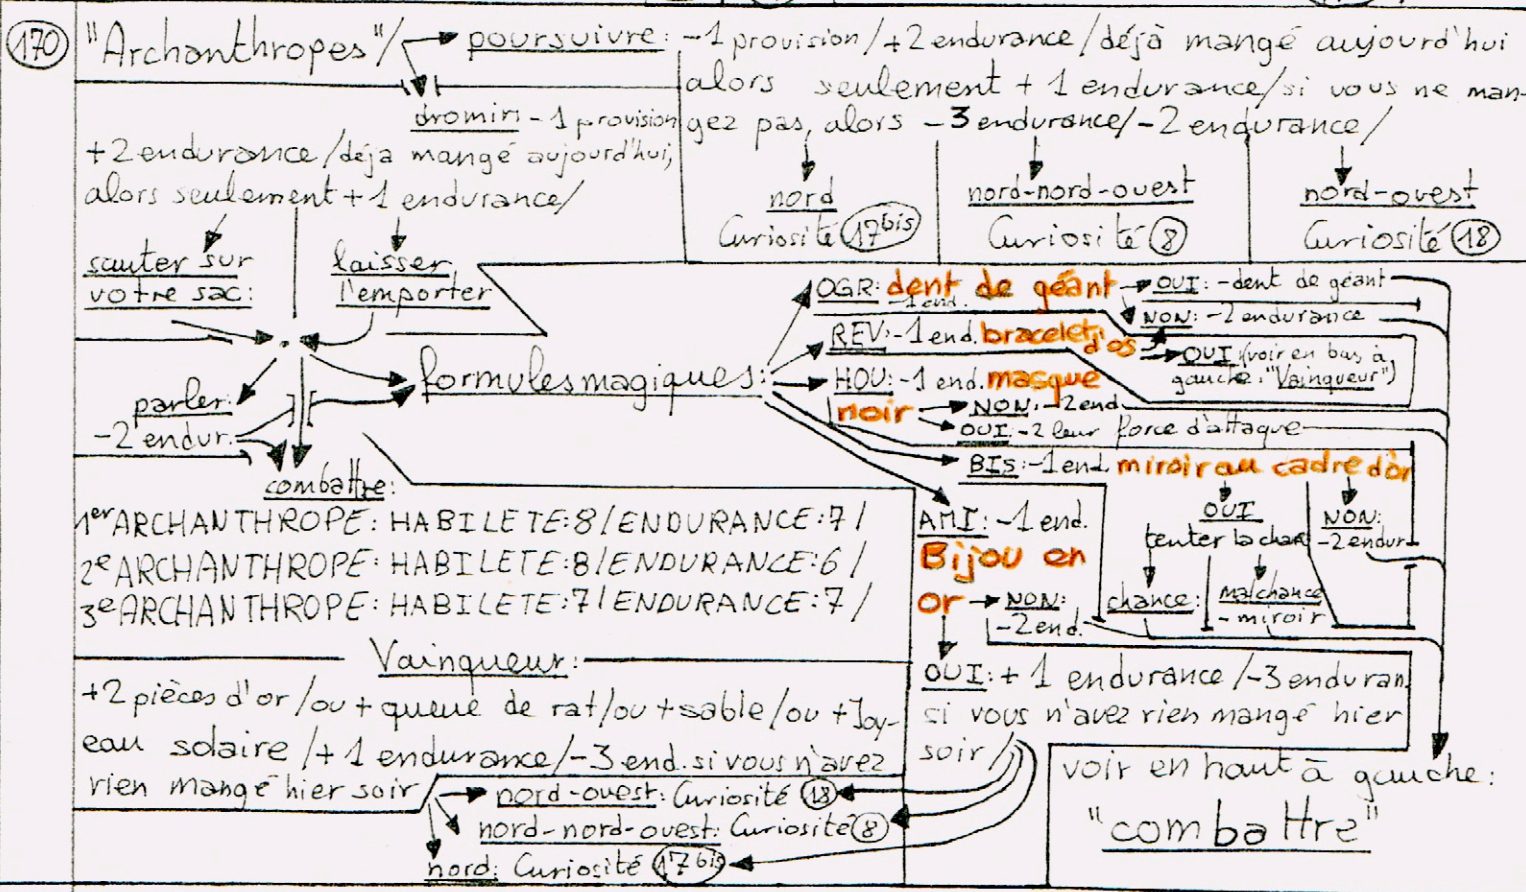 170
"Archanthropes"/
poursuivre: -1 provision/+2 endurance/déjà mangé aujourd'hui
alors seulement + 1 endurance/si vous ne man-
gez pas, alors -3 endurance/-2 endurance/
nord
Curiosité 17bis
nord-nord-ouest
Curiosité 8
nord-ouest
Curiosité 18
dromir: -1 provision
+2 endurance/déja mangé aujourd'hui,
alors seulement +1 endurance/
sauter sur
votre sac:
laisser
l'emporter
parler:
-2 endur.
formules magiques:
OGR: dent de géant
-1 end.
OUI: -dent de géant
NON: -2 endurance
REV: -1 end. bracelet
d'os
OUI (voir en bas à
gauche: "Vainqueur")
HOU: -1 end. masque
noir
NON: -2 end.
OUI: -2 leur force d'attaque
BIS: -1 end. miroir au cadre d'or
OUI
tenter la chan
chance:
malchance
- miroir
NON:
-2 endur.
AMI: -1 end.
Bijou en
or
NON:
-2 end.
OUI: + 1 endurance/-3 enduran
si vous n'avez rien mangé hier
soir/
combattre:
1er ARCHANTHROPE: HABILETE:8/ENDURANCE:7/
2e ARCHANTHROPE: HABILETE:8/ENDURANCE:6/
3e ARCHANTHROPE: HABILETE:7/ENDURANCE:7/
Vainqueur:
+2 pièces d'or/ou + queue de rat/ou + sable/ou + Joy-
eau solaire/+ 1 endurance/-3 end. si vous n'avez
rien mangé hier soir
nord-ouest: Curiosité 18
nord-nord-ouest: Curiosité 8
nord: Curiosité 17bis
voir en haut à gauche:
"combattre"